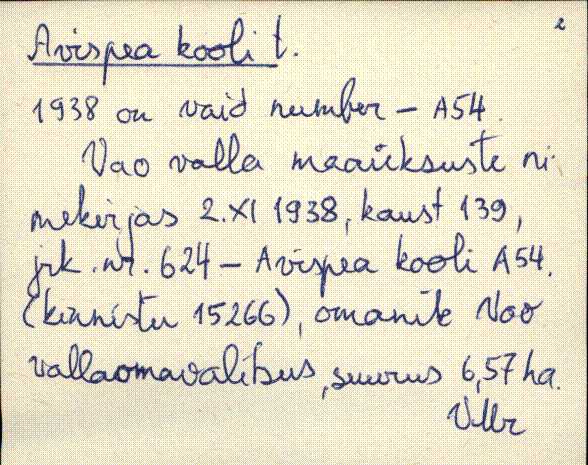 2
Avispea kooli t.
1938 on vaid number – A54.
Vao valla maaüksuste ni-
mekirjas 2.XI 1938, kaust 139,
jrk. nr. 624 – Avispea kooli A54.
(kinnistu 15266), omanik Vao
vallaomavalitsus, suurus 6,57 ha.